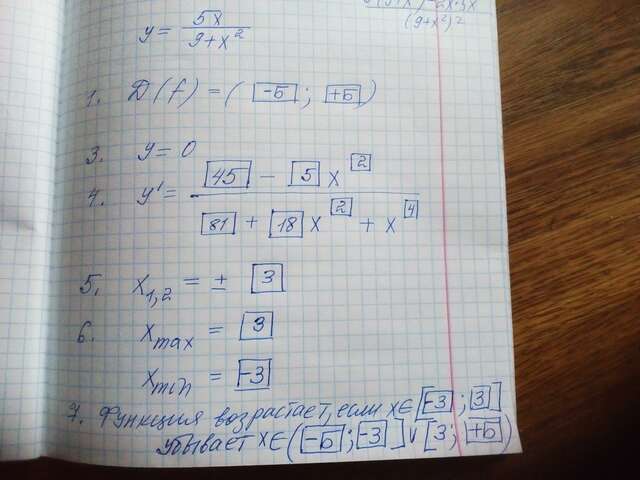 y = 5x / 9+x²
(9+x²)²
1. D(f) = ( -Б ; +Б )
3. y = 0
4. y' = 45 - 5 x² / 81 + 18 x² + x⁴
5. x₁,₂ = ± 3
6. x max = 3
x min = -3
7. Функция возрастает, если x∈[-3 ; 3]
убывает x∈(-Б ; -3] ∨ [3 ; +Б)